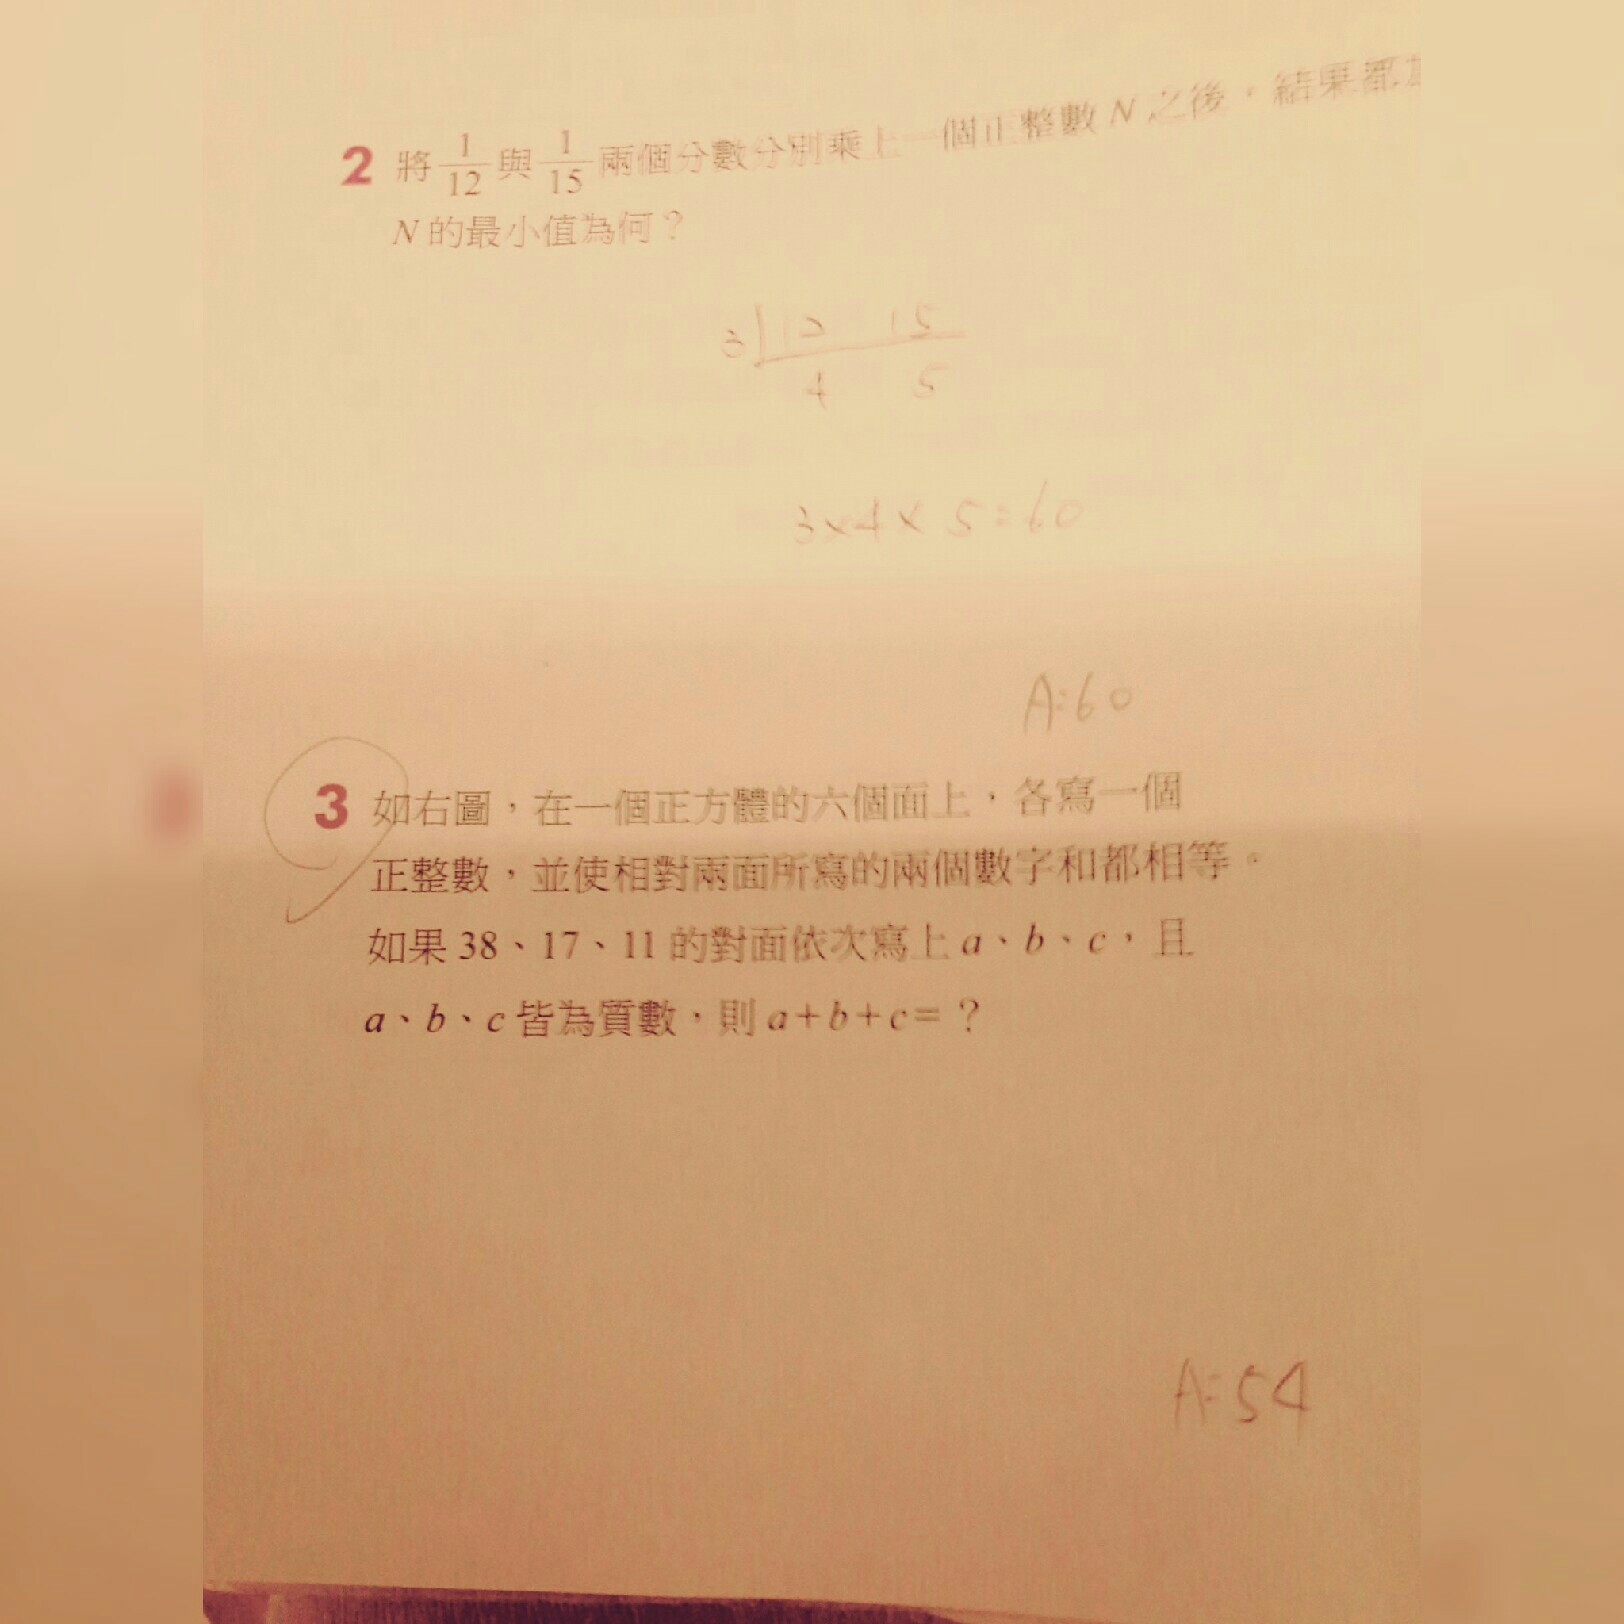 2 將 1/12 與 1/15 兩個分數分別乘上一個正整數 N 之後，結果都
N 的最小值為何？
3 12 15
4 5
3×4×5=60
A:60
3 如右圖，在一個正方體的六個面上，各寫一個
正整數，並使相對兩面所寫的兩個數字和都相等。
如果 38、17、11 的對面依次寫上 a、b、c，且
a、b、c 皆為質數，則 a+b+c=？
A:54